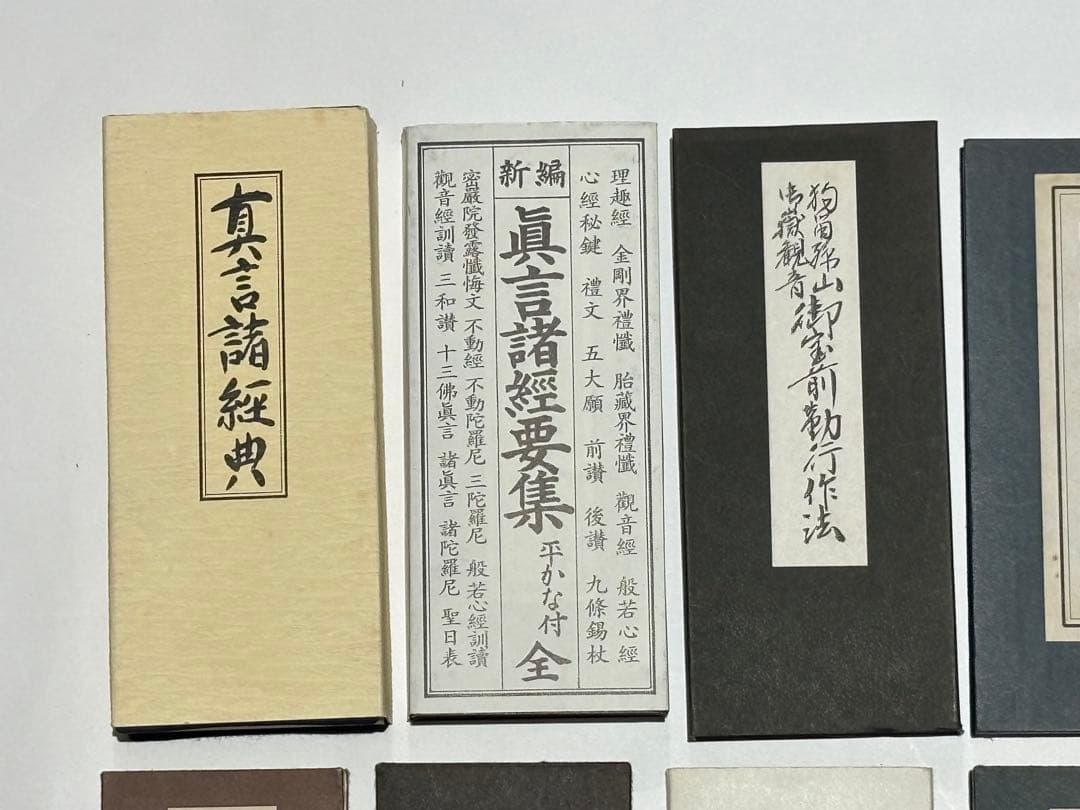 真言諸經典
新編
理趣經 金剛界禮懺 胎藏界禮懺 觀音經 般若心經
心經秘鍵 禮文 五大願 前讃 後讃 九條錫杖
眞言諸經要集 平かな付 全
密嚴院發露懺悔文 不動經 不動陀羅尼 三陀羅尼 般若心經訓讀
觀音經訓讀 三和讃 十三佛眞言 諸眞言 諸陀羅尼 聖日表
狗留孫山
御嶽観音
御宝前勤行作法